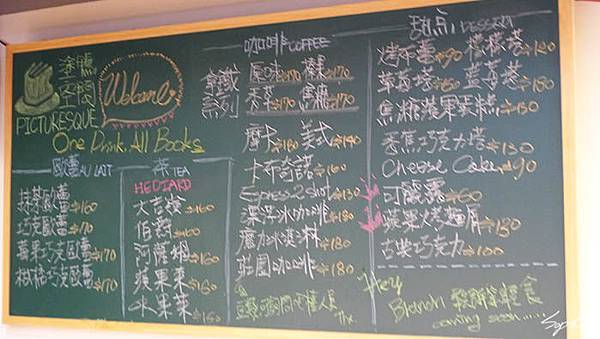 塗鴨
空間
PICTURESQUE
Welcome
One Drink. All Books
歐蕾 AU LAIT
抹茶歐蕾 160
巧克歐蕾 170
蘋果巧克歐蕾 170
榛格巧克歐蕾 170
茶 TEA
HEDIARD
大吉嶺 160
伯爵 160
阿薩姆 160
蘋果茶 160
水果茶 160
咖啡 COFFEE
拿鐵
系列
原味 170 榛果 170
抹茶 170 焦糖 170
摩卡 180 美式 140
卡布奇諾 160
Espresso 2 shot 130
漂浮冰咖啡 180
魔加冰淇淋 180
莊園咖啡 180
甜點 DESSERT
烤布蕾 90 檸檬塔 120
草莓塔 150 藍莓塔 150
焦糖蘋果蛋糕 150
香蕉巧克力塔 130
Cheese Cake 90
可麗露 60
蘋果烤麵屑 150
古典巧克力 100
Hey
Brunch 鬆餅 輕食
coming soon......